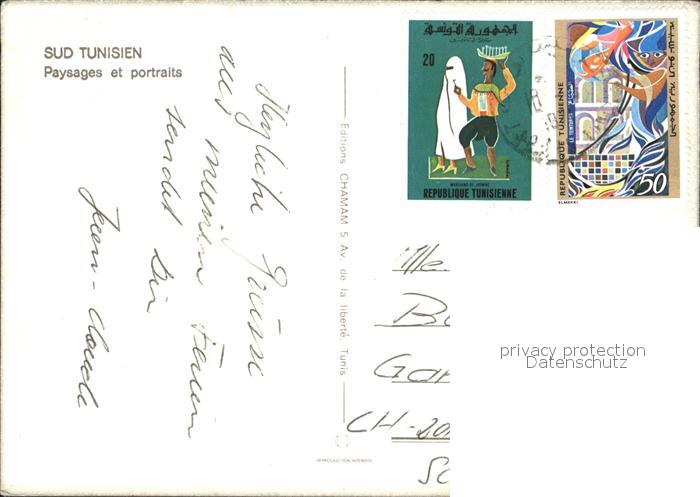 SUD TUNISIEN
Paysages et portraits
Herzliche Grüsse
aus meinen Ferien
sendet Dir
Jean-Claude
Editions CHAMAM 5 Av. de la liberté. Tunis
REPRODUCTION INTERDITE
الجمهورية التونسية
20
MARCHAND DE JASMINS
REPUBLIQUE TUNISIENNE
REPUBLIQUE TUNISIENNE
LE TEINTURIER
الجمهورية التونسية
50
ELMEKKI
Mle.
CH-20
privacy protection
Datenschutz